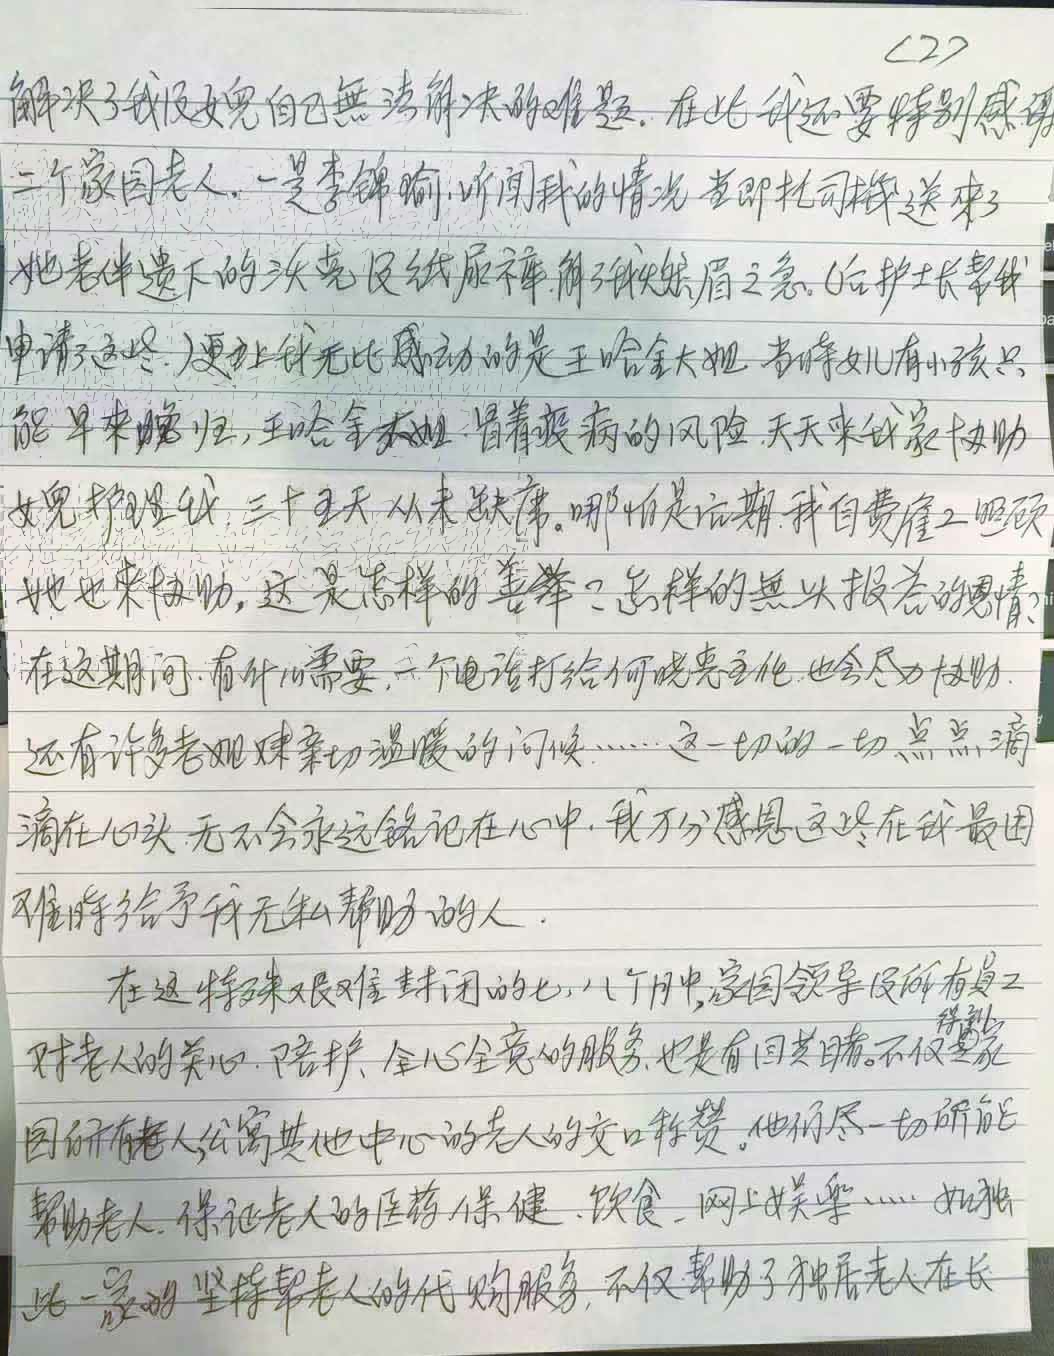 <2>
解决了我及女兒自己無法解决的难题. 在此我还要特别感谢
二个家园老人. 一是李锦瑜, 听闻我的情况当即托司機送来了
她老伴遗下的沃克及纸尿裤. 解了我燃眉之急. (后护士长帮我
申请了这些.) 更让我无比感动的是王哈金大姐 当時女儿有小孩只
能早来晚归, 王哈金大姐. 冒着疫病的风险. 天天来我家协助
女兒护理我. 三十五天从未缺席。哪怕是后期. 我自费雇工照顾
她也来协助. 这是怎样的善举? 怎样的無以报答的恩情?
在这期间. 有什么需要, 一个电话打给何晓亮主任. 也会尽力协助.
还有许多老姐妹亲切温暖的问候…… 这一切的一切点点滴
滴在心头. 无不会永远铭记在心中. 我万分感恩这些在我最困
难時给予我无私帮助的人.
在这特殊艰难封闭的七, 八个月中, 家园领导及所有員工
对老人的关心. 陪护、全心全意的服务, 也是有目共睹。不仅得到家
园所有老人, 公寓其他中心的老人的交口称赞。他们尽一切所能
帮助老人. 保证老人的医药保健、饮食、网上娱樂…… 如独
此一家的坚持帮老人的代购服务, 不仅帮助了独居老人在长